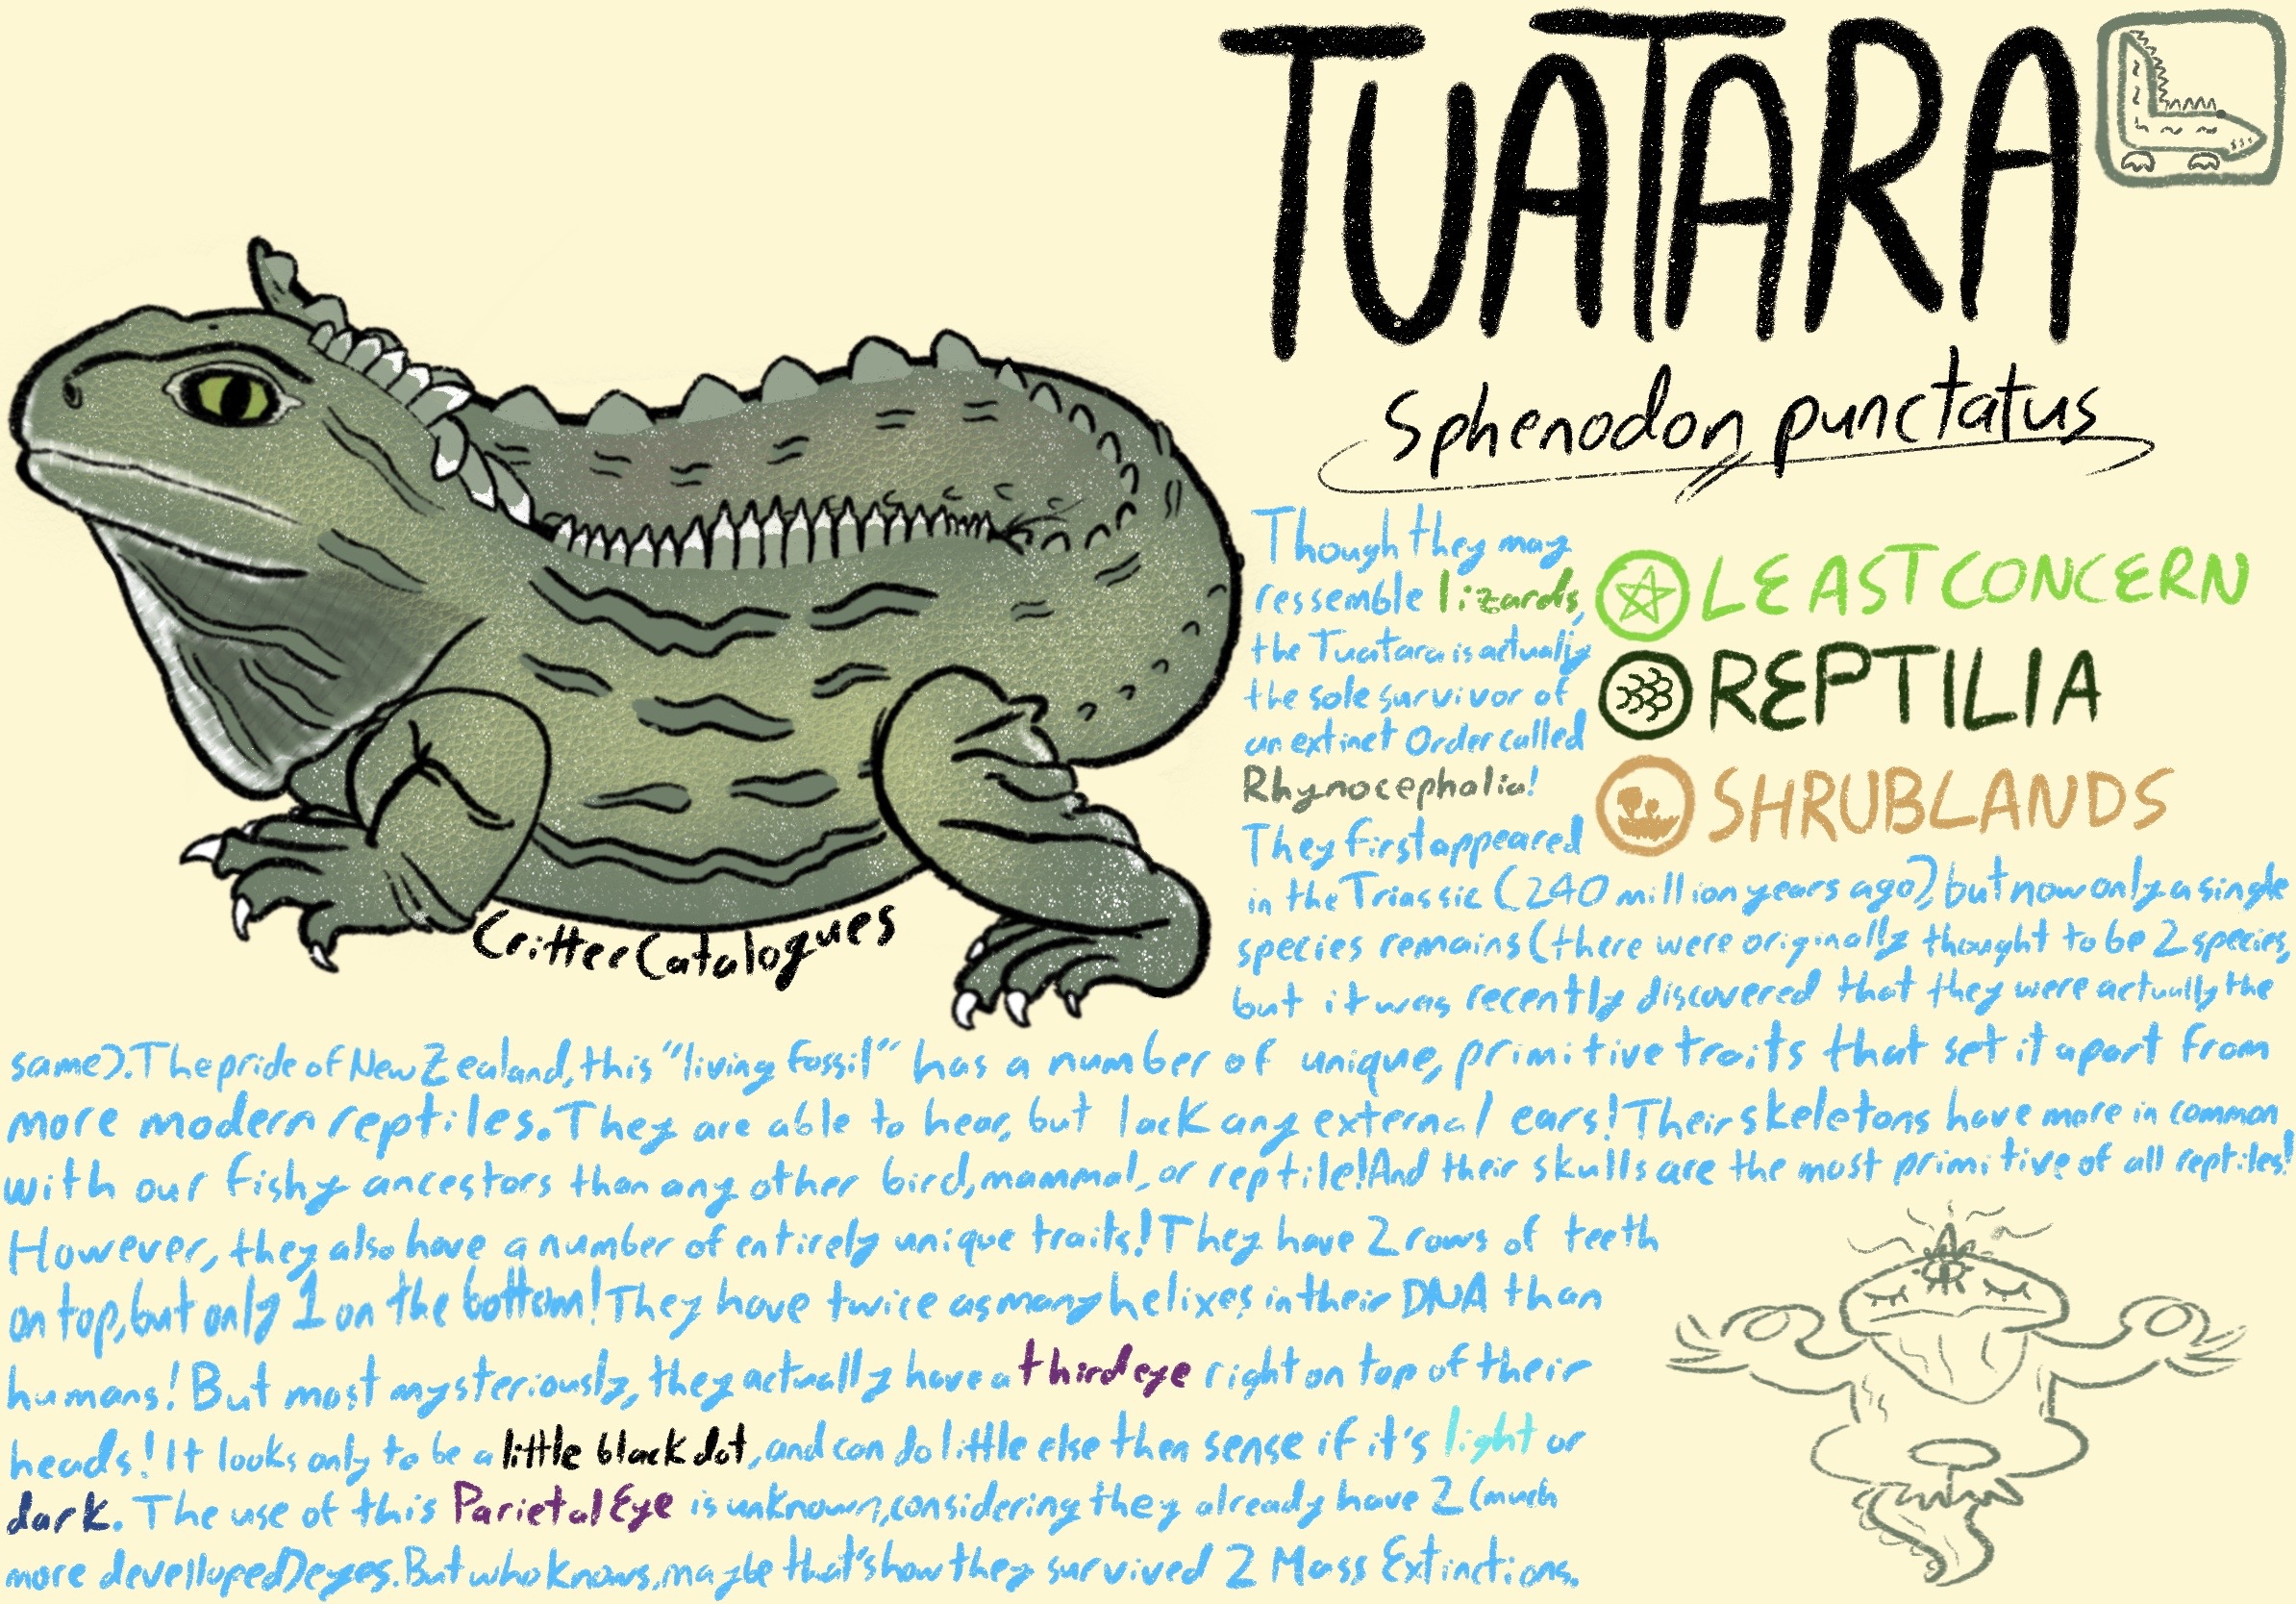 TUATARA
Sphenodon punctatus
Though they may
ressemble lizards,
the Tuatara is actually
the sole survivor of
an extinct Order called
Rhynocephalia!
They first appeared
LEAST CONCERN
REPTILIA
SHRUBLANDS
in the Triassic (240 million years ago), but now only a single
species remains (there were originally thought to be 2 species,
but it was recently discovered that they were actually the
CritterCatalogues
same). The pride of New Zealand, this "living fossil" has a number of unique, primitive traits that set it apart from
more modern reptiles. They are able to hear, but lack any external ears! Their skeletons have more in common
with our fishy ancestors than any other bird, mammal, or reptile! And their skulls are the most primitive of all reptiles!
However, they also have a number of entirely unique traits! They have 2 rows of teeth
on top, but only 1 on the bottom! They have twice as many helixes in their DNA than
humans! But most mysteriously, they actually have a third eye right on top of their
heads! It looks only to be a little black dot, and can do little else then sense if it's light or
dark. The use of this Parietal Eye is unknown, considering they already have 2 (much
more develloped) eyes. But who knows, maybe that's how they survived 2 Mass Extinctions.